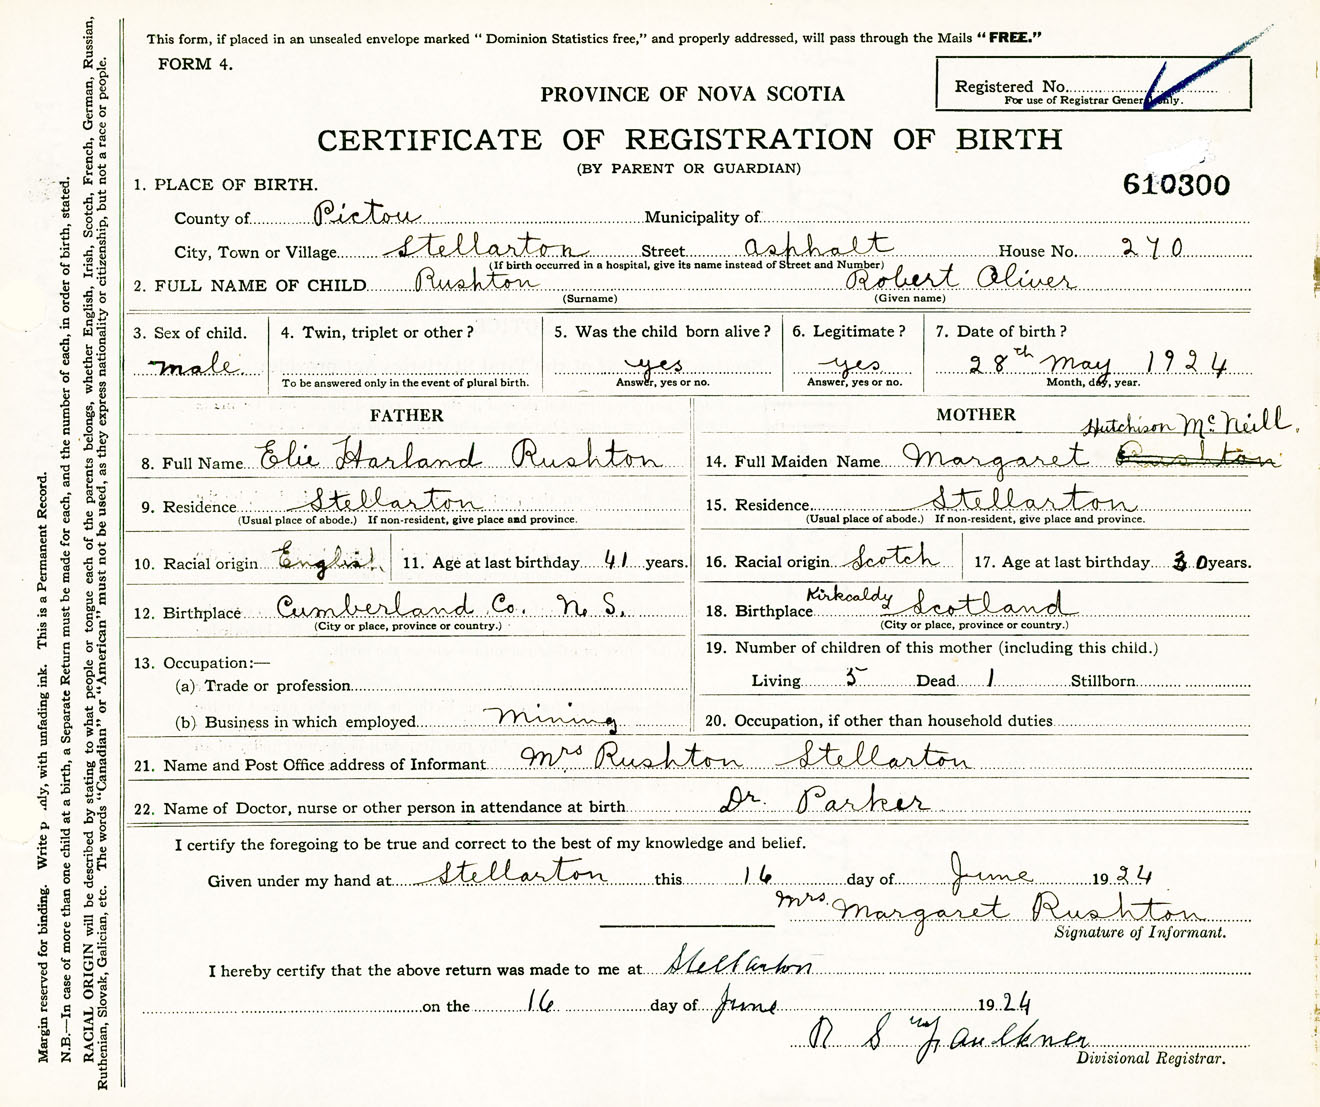 This form, if placed in an unsealed envelope marked "Dominion Statistics free," and properly addressed, will pass through the Mails "FREE."
FORM 4.
Registered No.
For use of Registrar General only.
PROVINCE OF NOVA SCOTIA
CERTIFICATE OF REGISTRATION OF BIRTH
(BY PARENT OR GUARDIAN)
610300
1. PLACE OF BIRTH.
County of Pictou Municipality of
City, Town or Village Stellarton Street Asphalt House No. 270
(If birth occurred in a hospital, give its name instead of Street and Number)
2. FULL NAME OF CHILD Rushton Robert Oliver
(Surname) (Given name)
3. Sex of child. 4. Twin, triplet or other? 5. Was the child born alive? 6. Legitimate? 7. Date of birth?
male yes yes 28th May 1924
To be answered only in the event of plural birth. Answer, yes or no. Answer, yes or no. Month, day, year.
FATHER
8. Full Name Elie Harland Rushton
9. Residence Stellarton
(Usual place of abode.) If non-resident, give place and province.
10. Racial origin English 11. Age at last birthday 41 years.
12. Birthplace Cumberland Co. N. S.
(City or place, province or country.)
13. Occupation:—
(a) Trade or profession
(b) Business in which employed Mining
MOTHER
Hutchison McNeill.
14. Full Maiden Name Margaret Rushton
15. Residence Stellarton
(Usual place of abode.) If non-resident, give place and province.
16. Racial origin Scotch 17. Age at last birthday 30 years.
18. Birthplace Kirkcaldy Scotland
(City or place, province or country.)
19. Number of children of this mother (including this child.)
Living 5 Dead 1 Stillborn
20. Occupation, if other than household duties
21. Name and Post Office address of Informant Mrs Rushton Stellarton
22. Name of Doctor, nurse or other person in attendance at birth Dr. Parker
I certify the foregoing to be true and correct to the best of my knowledge and belief.
Given under my hand at Stellarton this 16 day of June 1924
Mrs. Margaret Rushton
Signature of Informant.
I hereby certify that the above return was made to me at Stellarton
on the 16 day of June 1924
Faulkner
Divisional Registrar.
Margin reserved for binding. Write plainly, with unfading ink. This is a Permanent Record.
N.B.—In case of more than one child at a birth, a Separate Return must be made for each, and the number of each, in order of birth, stated.
RACIAL ORIGIN will be described by stating to what people or tongue each of the parents belongs, whether English, Irish, Scotch, French, German, Russian,
Ruthenian, Slovak, Galician, etc. The words "Canadian" or "American" must not be used, as they express nationality or citizenship, but not a race or people.